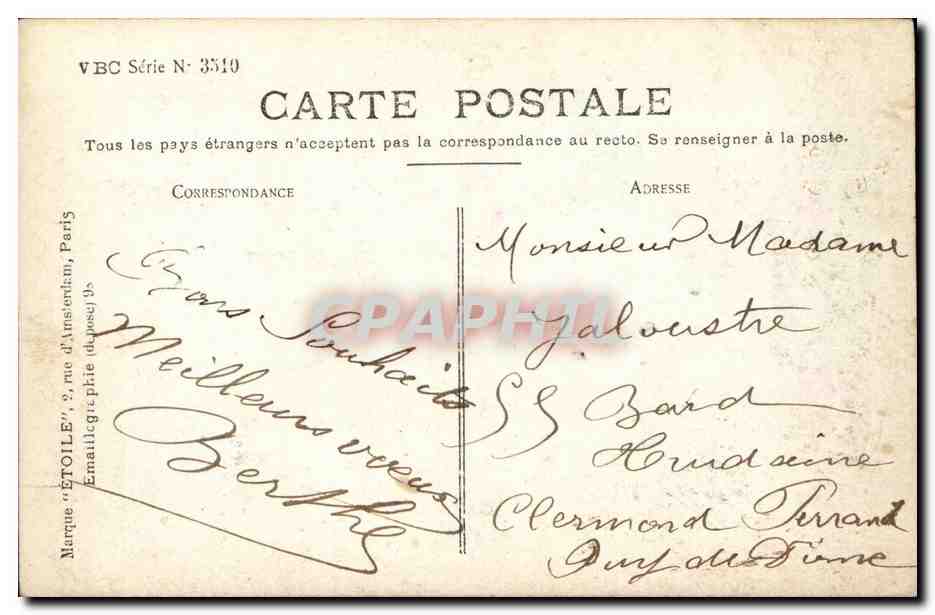 VBC Série Nº 3510
CARTE POSTALE
Tous les pays étrangers n'acceptent pas la correspondance au recto. Se renseigner à la poste.
CORRESPONDANCE
Souhaits
Meilleurs vœux
Berthe
ADRESSE
Monsieur Madame
Jaloustre
Bard
Clermond Ferrand
Puy de Dôme
Marque "ÉTOILE", 2, rue d'Amsterdam, Paris
Emaillographie (déposé) 93
CPAPHIL